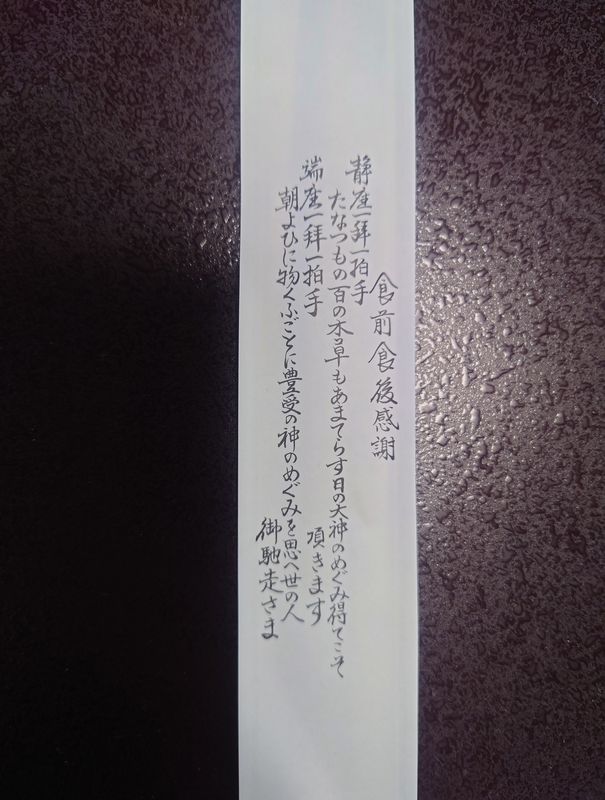 食前食後感謝
静座一拝一拍手
たなつもの百の木草もあまてらす日の大神のめぐみ得てこそ
頂きます
端座一拝一拍手
朝よひに物くふごとに豊受の神のめぐみを思へ世の人
御馳走さま